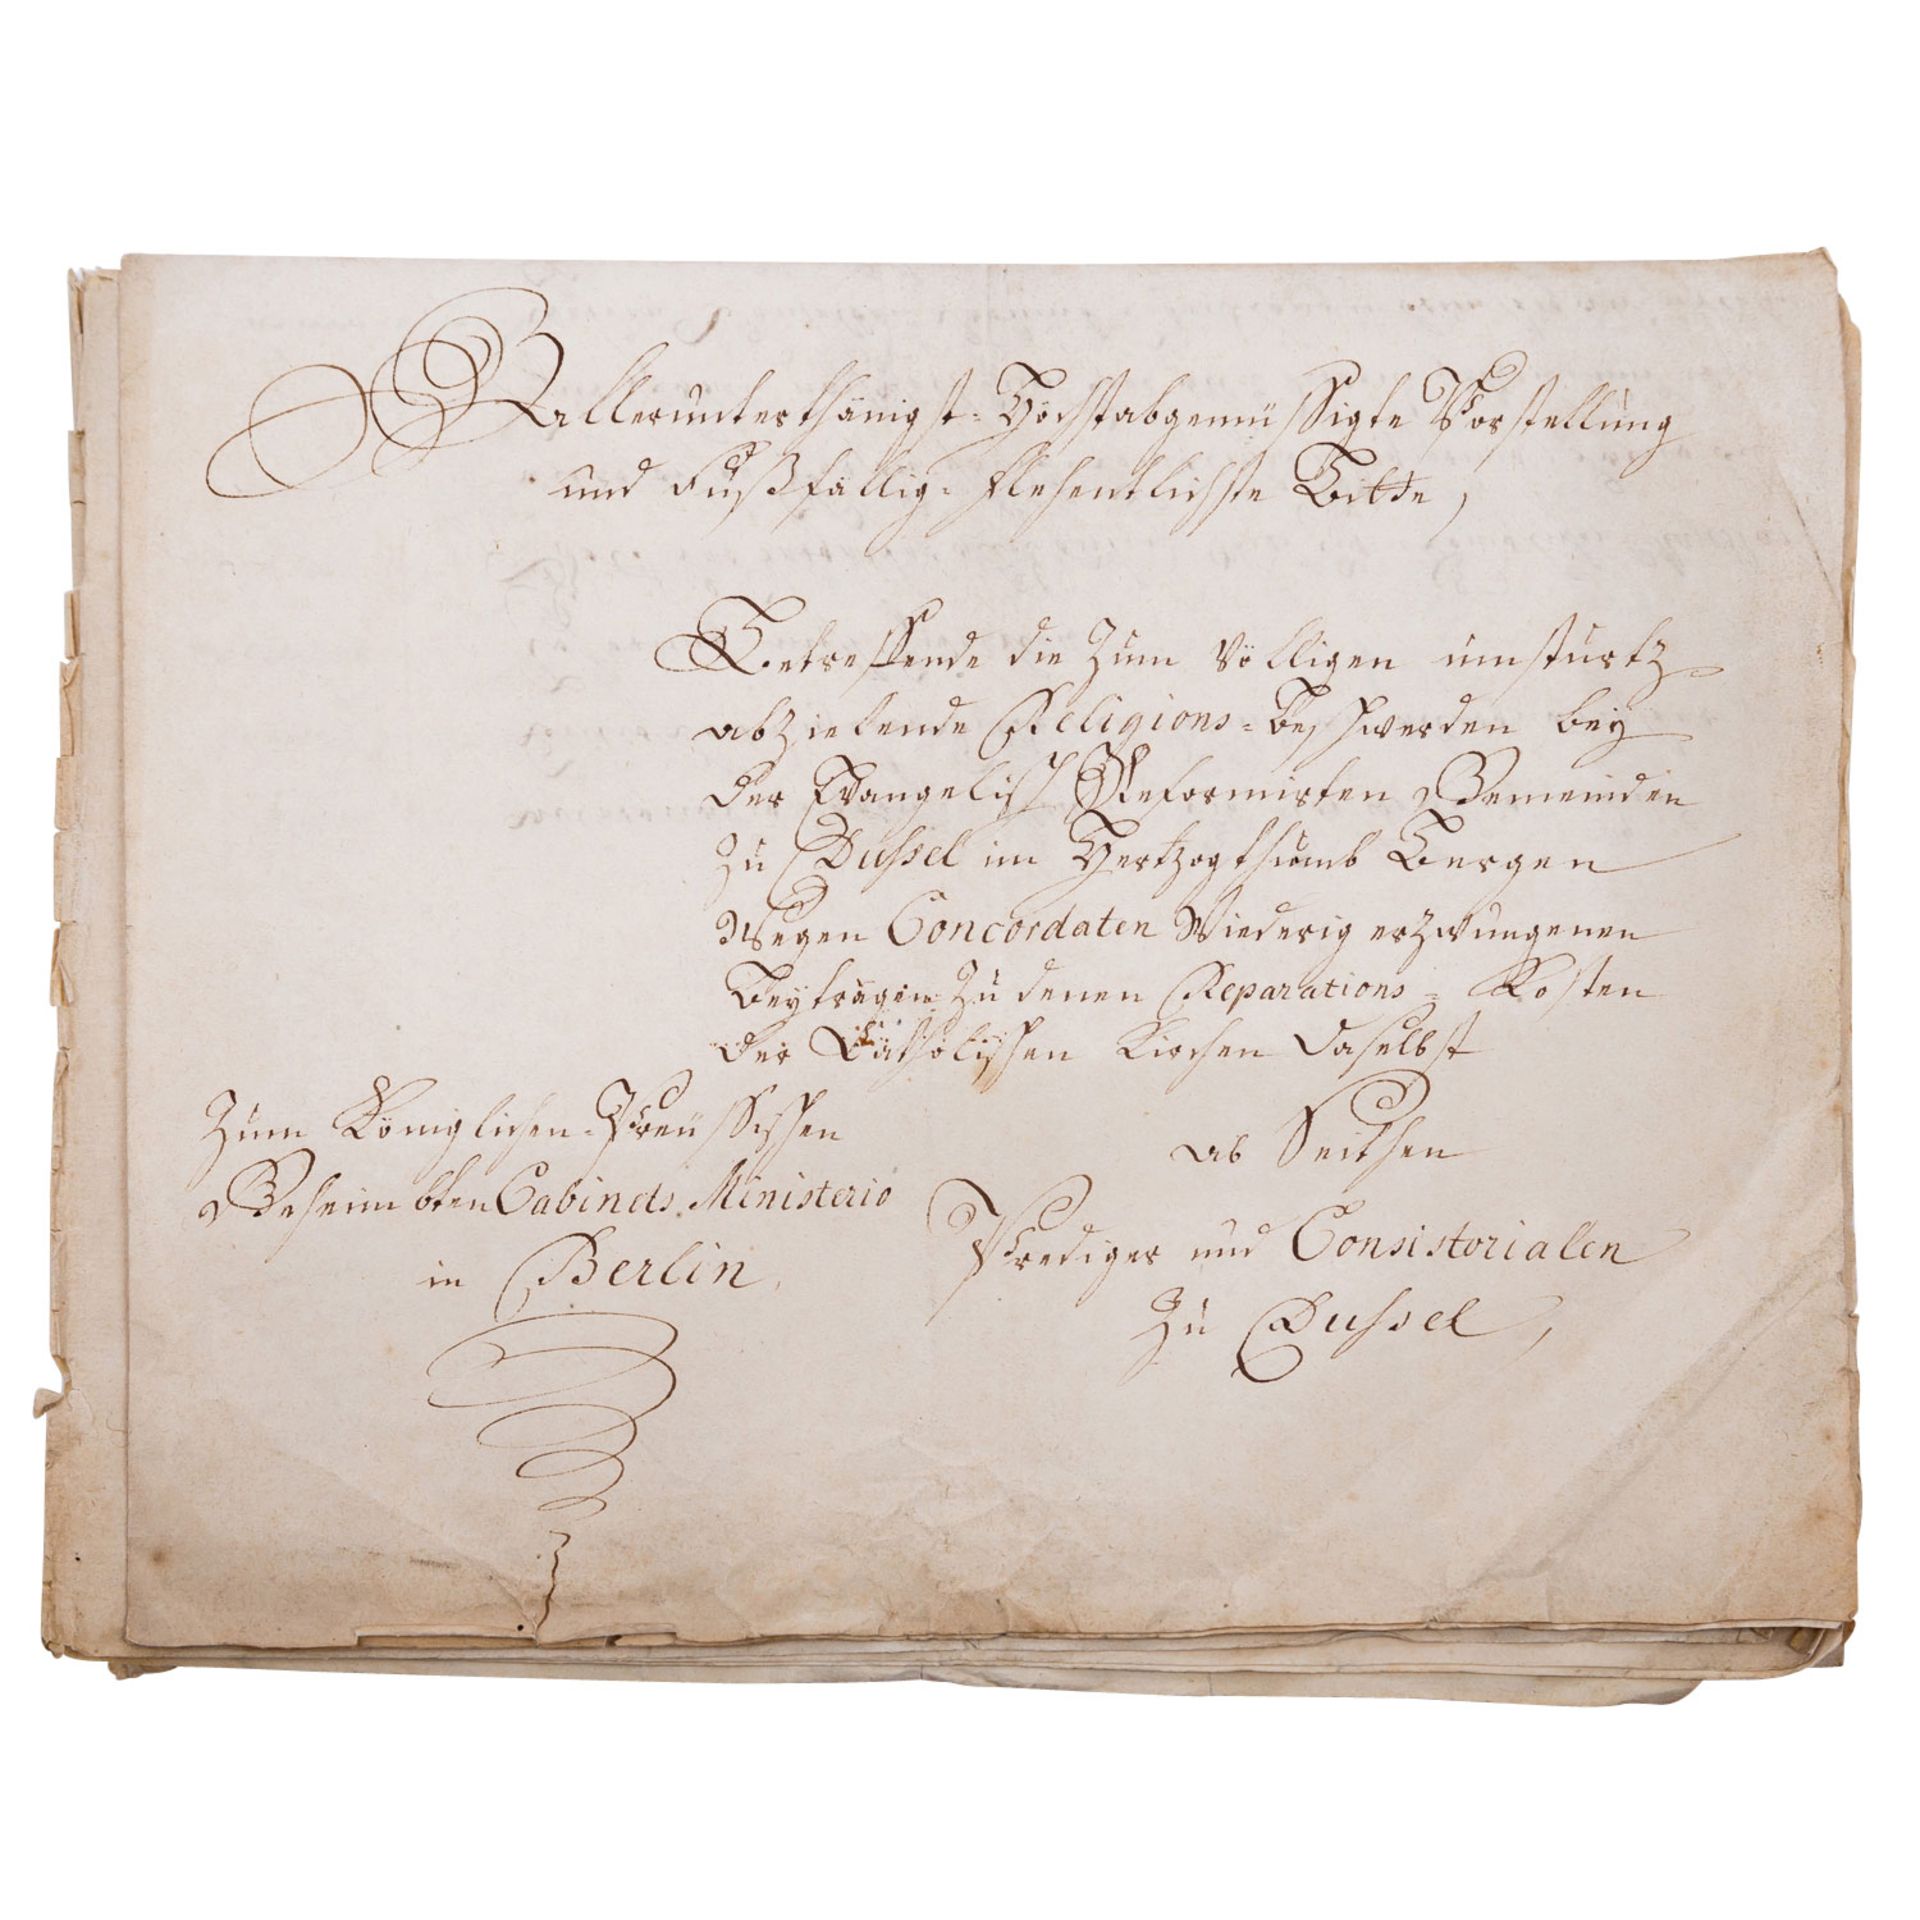 Allerunterthänigst-Höchstabgemüssigte Vorstellung
und Fußfällig-flehentlichste Bitte,
Betreffende die Zum Völligen umsturtz
abzielende Religions-beschwerden bey
der Evangelisch Reformirten Gemeinden
Zu Dussel im Hertzogthumb Bergen
Wegen Concordaten Wiederig erzwungenen
Beyträgen Zu denen Reparations-Kosten
der Catholischen Kirchen daselbst
Zum Königlichen-Preüssischen
Geheimbten Cabinets Ministerio
in Berlin
ab Seithen
Prediger und Consistorialen
Zu Dussel,